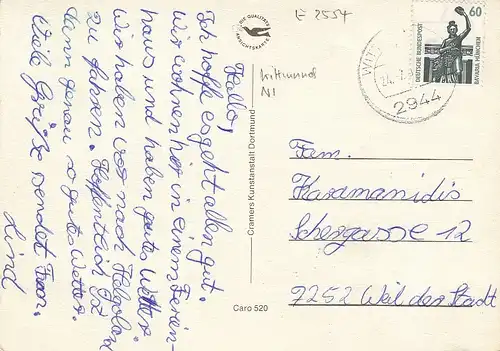 Hallo,
Ich hoffe es geht allen gut.
Wir wohnen hier in einem Ferien-
haus und haben gutes Wetter.
Wir haben vor nach Helgoland
zu fahren. Hoffentlich ist
dann genau so gutes Wetter.
Viele Grüße sendet Fam.
Lind
DIE QUALITÄTS
ANSICHTSKARTE
E 2554
Wittmund
NI
Cramers Kunstanstalt Dortmund
Caro 520
2944
60
DEUTSCHE BUNDESPOST
BAVARIA MÜNCHEN
Fam.
Karamanidis
Schergasse 12
7252 Weil der Stadt